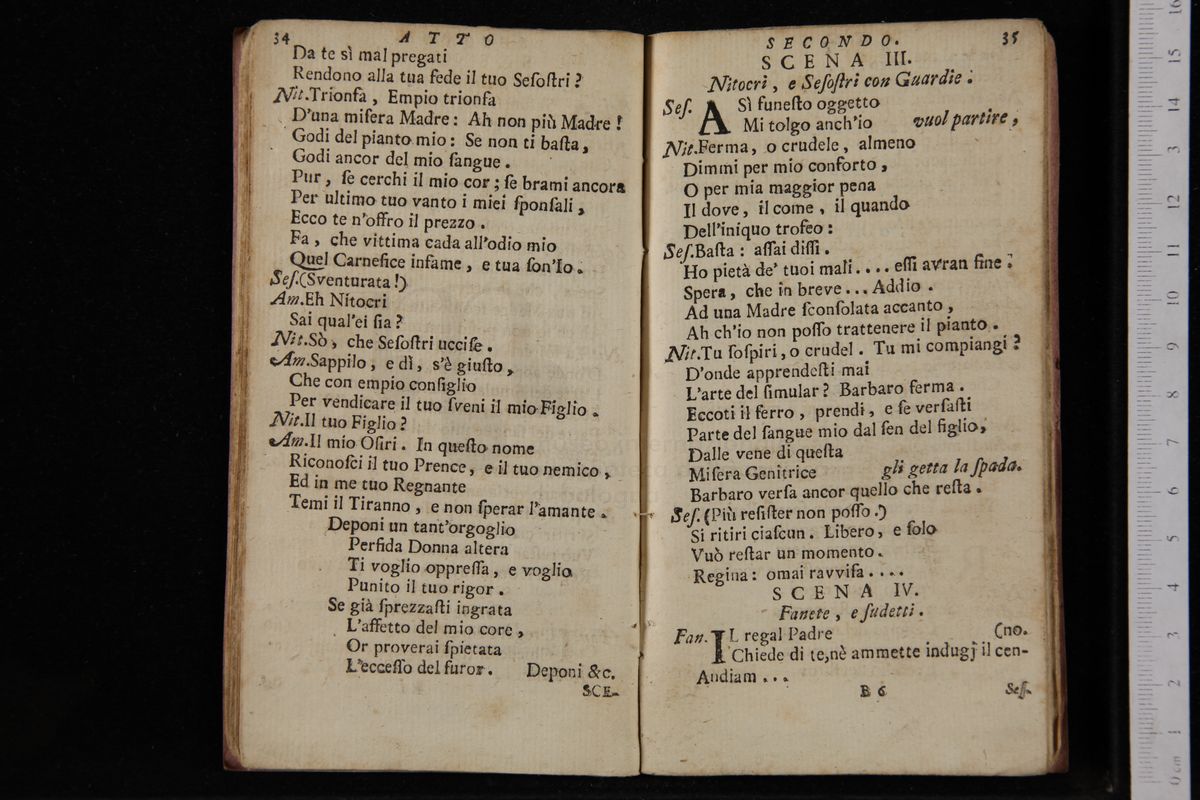 34 ATTO
Da te sì mal pregati
Rendono alla tua fede il tuo Seſoſtri ?
Nit.Trionfa , Empio trionfa
D'una miſera Madre : Ah non più Madre !
Godi del pianto mio : Se non ti baſta,
Godi ancor del mio ſangue .
Pur , ſe cerchi il mio cor ; ſe brami ancora
Per ultimo tuo vanto i miei ſponſali ,
Ecco te n'offro il prezzo .
Fa , che vittima cada all'odio mio
Quel Carnefice infame , e tua ſon'Io .
Seſ.(Sventurata !)
Am.Eh Nitocri
Sai qual'ei ſia ?
Nit.Sò , che Seſoſtri ucciſe .
Am.Sappilo , e dì , s'è giuſto ,
Che con empio conſiglio
Per vendicare il tuo ſveni il mio Figlio .
Nit.Il tuo Figlio ?
Am.Il mio Oſiri . In queſto nome
Riconoſci il tuo Prence , e il tuo nemico ,
Ed in me tuo Regnante
Temi il Tiranno , e non ſperar l'amante .
Deponi un tant'orgoglio
Perfida Donna altera
Ti voglio oppreſſa , e voglio
Punito il tuo rigor .
Se già ſprezzaſti ingrata
L'affetto del mio core ,
Or proverai ſpietata
L'ecceſſo del furor . Deponi &c.
SCE-
SECONDO. 35
SCENA III.
Nitocri , e Seſoſtri con Guardie .
Seſ. ASì funeſto oggetto
Mi tolgo anch'io vuol partire ,
Nit.Ferma , o crudele , almeno
Dimmi per mio conforto ,
O per mia maggior pena
Il dove , il come , il quando
Dell'iniquo trofeo :
Seſ.Baſta : aſſai diſſi .
Ho pietà de' tuoi mali .... eſſi avran fine :
Spera , che in breve ... Addio .
Ad una Madre ſconſolata accanto ,
Ah ch'io non poſſo trattenere il pianto .
Nit.Tu ſoſpiri , o crudel . Tu mi compiangi ?
D'onde apprendeſti mai
L'arte del ſimular ? Barbaro ferma .
Eccoti il ferro , prendi , e ſe verſaſti
Parte del ſangue mio dal ſen del figlio,
Dalle vene di queſta
Miſera Genitrice gli getta la ſpada.
Barbaro verſa ancor quello che reſta .
Seſ.(Più reſiſter non poſſo .)
Si ritiri ciaſcun . Libero , e ſolo
Vuò reſtar un momento .
Regina : omai ravviſa ....
SCENA IV.
Fanete , e ſudetti .
Fan. IL regal Padre (no.
Chiede di te,nè ammette indugj il cen-
Andiam ...
B 6 Seſ.